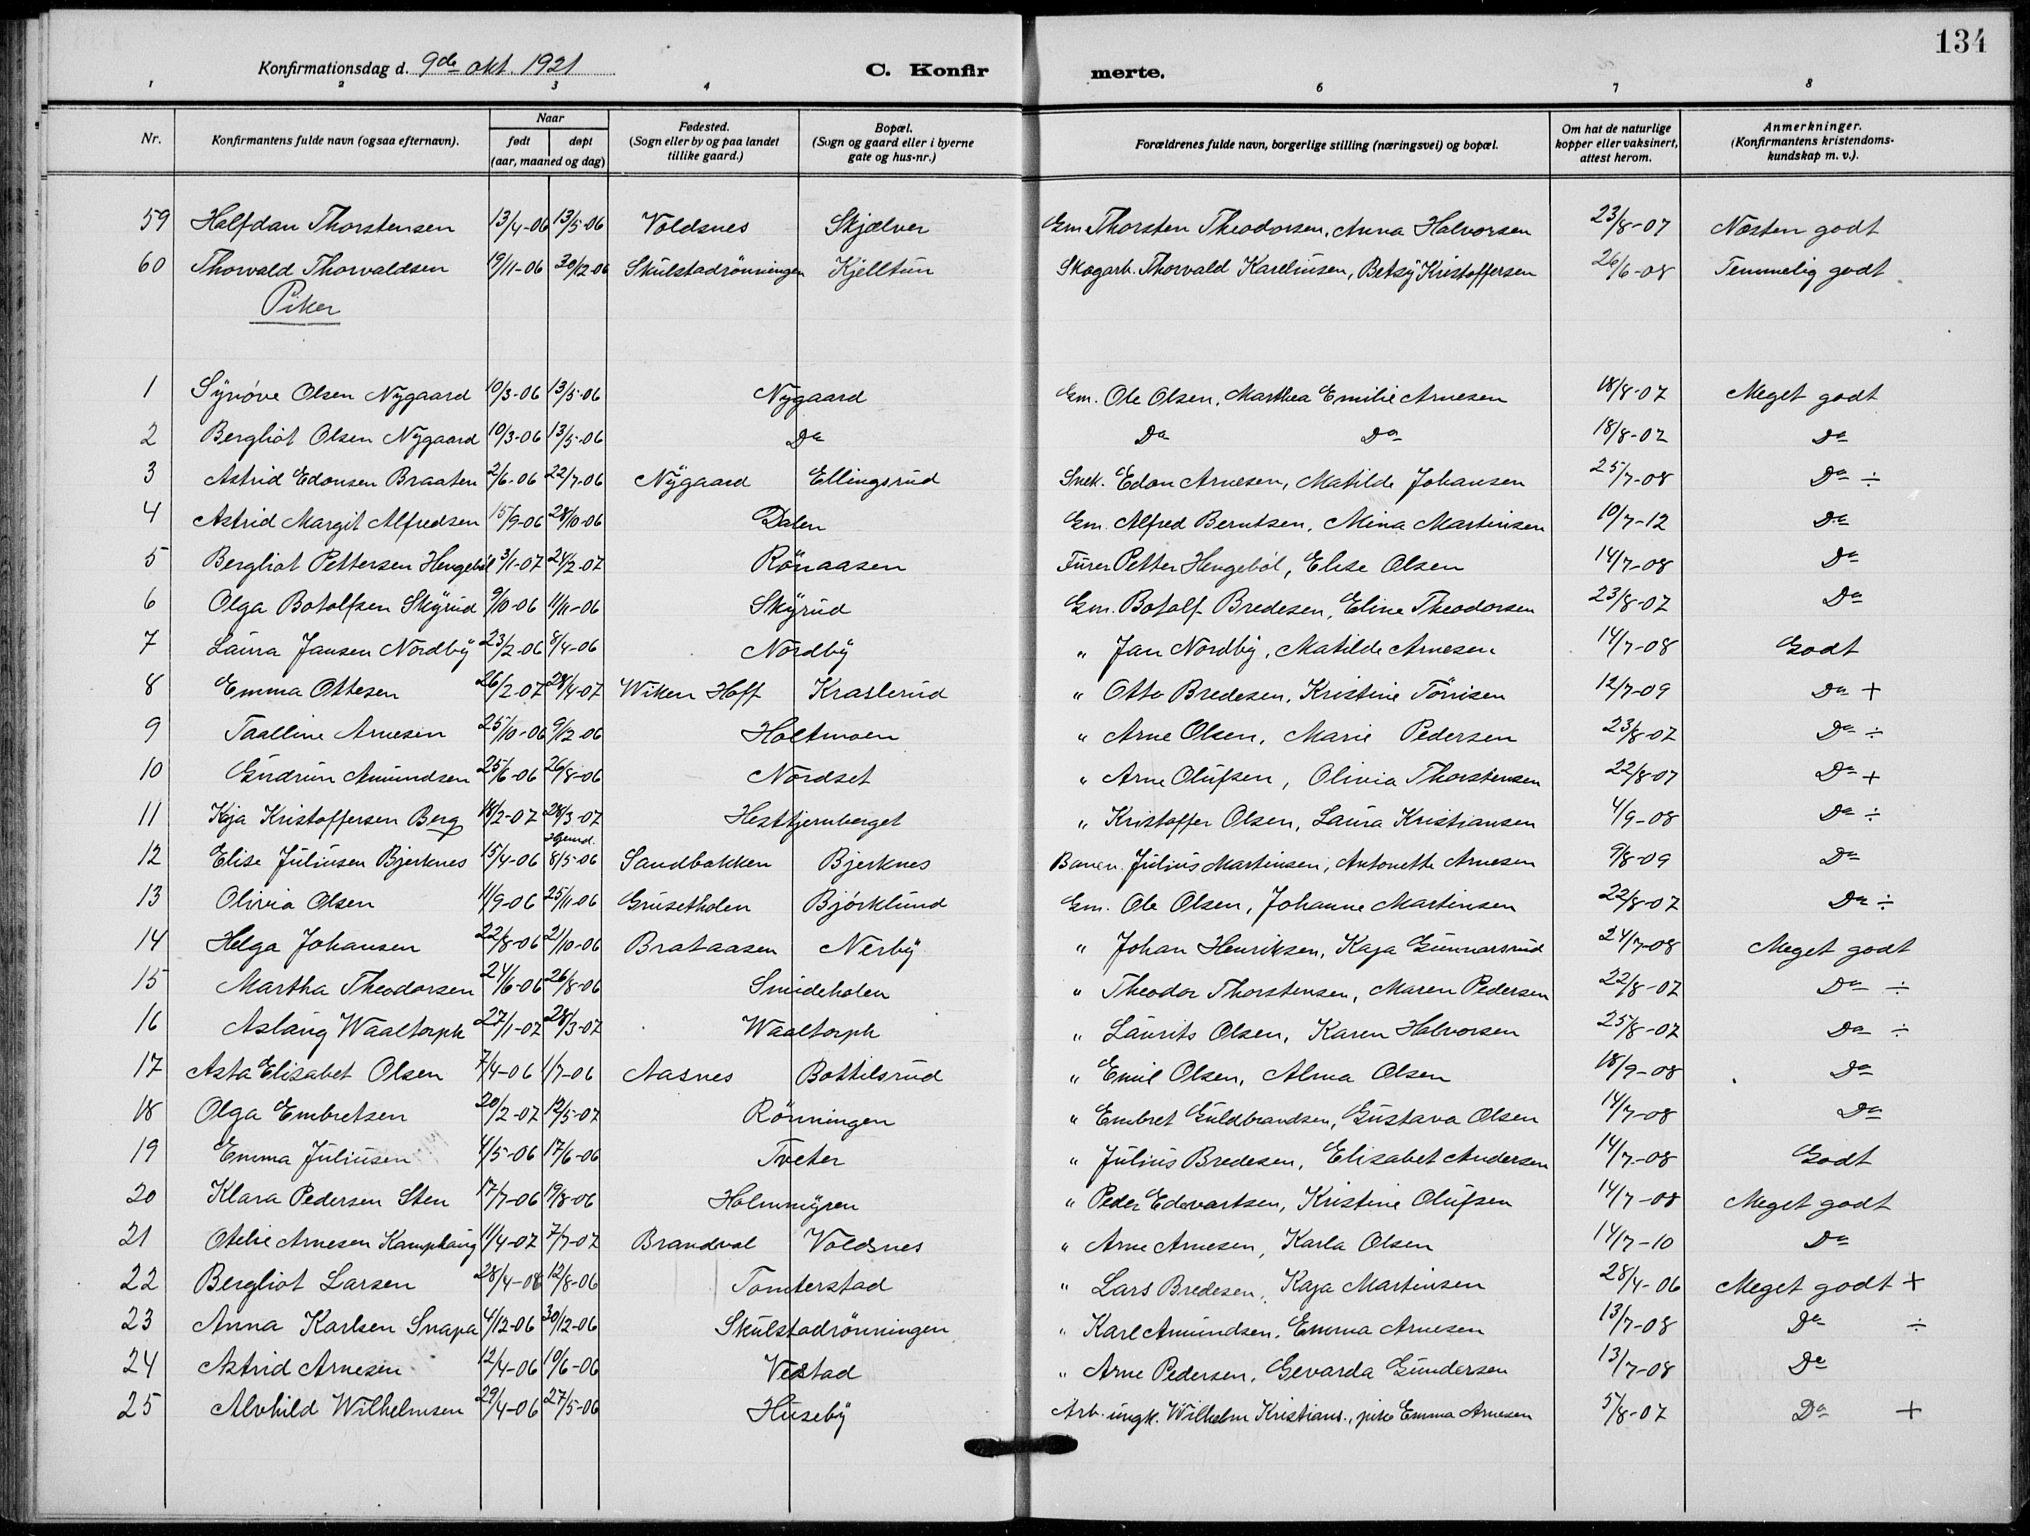 134
Konfirmationsdag d. 9de okt. 1921 C. Konfir merte.
1 2 3 4 6 7 8
Nr. Konfirmantens fulde navn (ogsaa efternavn). Naar født døpt (aar, maaned og dag) Fødested. (Sogn eller by og paa landet tillike gaard.) Bopæl. (Sogn og gaard eller i byerne gate og hus-nr.) Forældrenes fulde navn, borgerlige stilling (næringsvei) og bopæl. Om hat de naturlige kopper eller vaksinert, attest herom. Anmerkninger. (Konfirmantens kristendoms-kundskap m. v.).
59 Halfdan Thorstensen 13/4-06 13/5-06 Voldsnes Skjælver Gm. Thorsten Theodorsen, Anna Halvorsen 23/8-07 Næsten godt
60 Thorvald Thorvaldsen 19/11-06 30/12-06 Skulstadrönningen Kjelltun Skogarb. Thorvald Kareliusen, Betsy Kristoffersen 26/6-08 Temmelig godt
Piker
1 Synøve Olsen Nygaard 10/3-06 13/5-06 Nygaard Gm. Ole Olsen, Marthea Emilie Arnesen 18/8-07 Meget godt
2 Bergliot Olsen Nygaard 10/3-06 13/5-06 Do Do Do 18/8-07 Do
3 Astrid Edonsen Braaten 2/6-06 22/7-06 Nygaard Ellingsrud Snek. Edon Arnesen, Matilde Johansen 25/7-08 Do ÷
4 Astrid Margit Alfredsen 15/9-06 28/10-06 Dalen Gm. Alfred Berntsen, Mina Martinsen 10/7-12 Do
5 Bergliot Pettersen Hengeböl 3/1-07 24/2-07 Rönaasen Furer Petter Hengeböl, Elise Olsen 14/7-08 Do
6 Olga Botolfsen Skyrud 9/10-06 11/11-06 Skyrud Gm. Botolf Bredesen, Eline Theodorsen 23/8-07 Do
7 Laura Jansen Nordby 23/2-06 8/4-06 Nordby " Jan Nordby, Matilde Arnesen 14/7-08 Godt
8 Emma Ottesen 26/2-07 28/4-07 Wiken Hoff Kraslerud " Otto Bredesen, Kristine Tönisen 12/7-09 Do +
9 Taalline Arnesen 25/10-06 9/2-06 Holtmoen " Arne Olsen, Marie Pedersen 23/8-07 Do ÷
10 Gudrun Amundsen 25/6-06 26/8-06 Nordset " Arne Olufsen, Olivia Thorstensen 22/8-07 Do +
11 Kaja Kristoffersen Berg 18/2-07 28/3-07 Hesttjernberget " Kristoffer Olsen, Laura Kristiansen 4/9-08 Do ÷
12 Elise Juliusen Bjerknes 15/4-06 Hjemd. 8/5-06 Sandbakken Bjerknes Banen. Julius Martinsen, Antonette Arnesen 9/8-09 Do
13 Olivia Olsen 11/9-06 25/11-06 Grusetholen Björklund Gm. Ole Olsen, Johanne Martinsen 22/8-07 Do ÷
14 Helga Johansen 22/8-06 21/10-06 Brataasen Nerby " Johan Henriksen, Kaja Gunnarsrud 24/7-08 Meget godt
15 Martha Theodorsen 24/6-06 26/8-06 Smideholen " Theodor Thorstensen, Maren Pedersen 22/8-07 Do ÷
16 Aslaug Waaltorph 27/1-07 28/3-07 Waaltorph " Laurits Olsen, Karen Halvorsen 25/8-07 Do ÷
17 Asta Elisabet Olsen 7/4-06 1/7-06 Aasnes Bottilsrud " Emil Olsen, Alma Olsen 18/9-08 Do
18 Olga Embretsen 20/2-07 12/5-07 Rönningen " Embret Guldbrandsen, Gustava Olsen 14/7-08 Do
19 Emma Juliusen 4/5-06 17/6-06 Tveter " Julius Bredesen, Elisabet Andersen 14/7-08 Godt
20 Klara Pedersen Sten 17/7-06 19/8-06 Holmmyren " Peder Edevartsen, Kristine Olufsen 14/7-08 Meget godt
21 Otelie Arnesen Kamphaug 11/4-07 7/7-07 Brandval Voldsnes " Arne Arnesen, Karla Olsen 14/7-10 Do
22 Bergliot Larsen 28/4-08 12/8-06 Tomterstad " Lars Bredesen, Kaja Martinsen 28/4-06 Meget godt +
23 Anna Karlsen Snapa 4/12-06 30/12-06 Skulstadrönningen " Karl Amundsen, Emma Arnesen 13/7-08 Do ÷
24 Astrid Arnesen 12/4-06 10/6-06 Vestad " Arne Pedersen, Gevarda Gundersen 13/7-08 Do
25 Alvhild Wilhelmsen 29/4-06 27/5-06 Huseby Arb. ungk. Wilhelm Kristians., pike Emma Arnesen 5/8-07 Do +